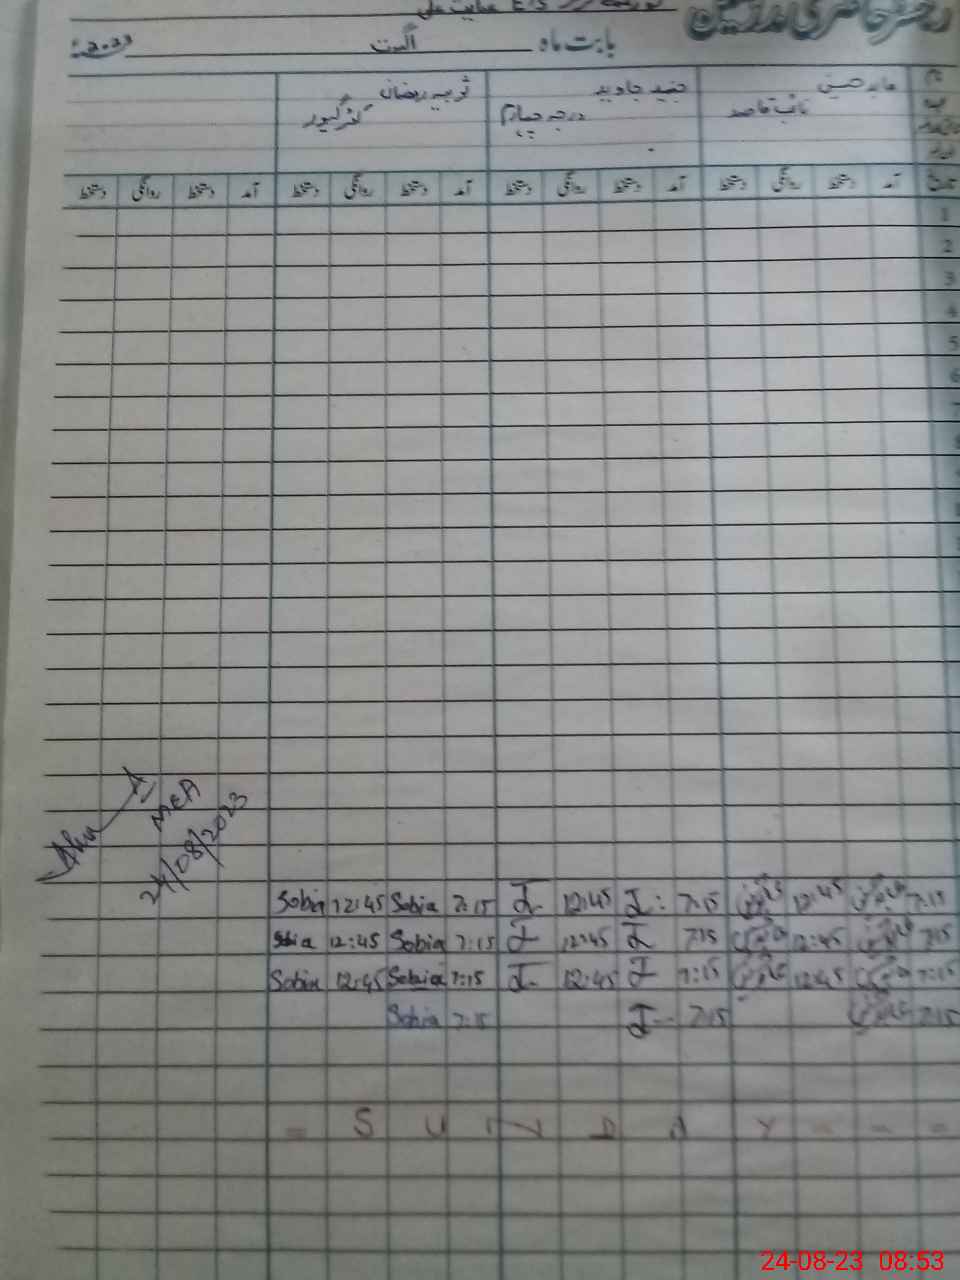 رجسٹر حاضری مدرسین
بابت ماہ اگست 2023ء
نام عابد حسین جنید جاوید ثوبیہ رمضان
نائب قاصد درجہ چہارم
تاریخ آمد دستخط روانگی دستخط آمد دستخط روانگی دستخط آمد دستخط روانگی دستخط آمد دستخط روانگی دستخط
1
2
3
4
5
6
MEA
24/08/2023
Sobia 12:45 Sobia 7:15 J 12:45 J 7:15 12:45 7:15
Sobia 12:45 Sobia 7:15 J 12:45 J 7:15 12:45 7:15
Sobia 12:45 Sobia 7:15 J 12:45 J 7:15 12:45 7:15
Sobia 7:15 J 7:15 7:15
= S U N D A Y - - =
24-08-23 08:53